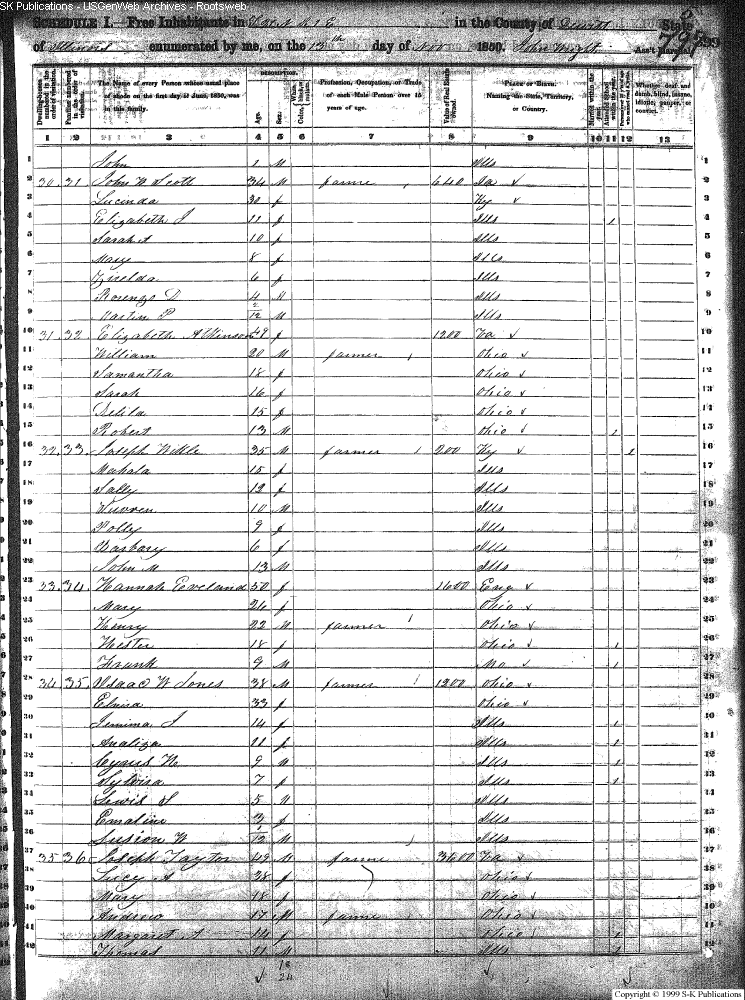 SK Publications - USGenWeb Archives - Rootsweb
SCHEDULE I. Free Inhabitants in in the County of Dewitt State
of Illinois enumerated by me, on the 15th day of Nov 1850. John Wright Ass't Marshal
DESCRIPTION.
Dwelling-houses numbered in the order of visitation. Families numbered in the order of visitation. The Name of every Person whose usual place of abode on the first day of June, 1850, was in this family. Age. Sex. White, Color, Profession, Occupation, or Trade of each Male Person over 15 years of age. Value of Real Estate owned. PLACE OF BIRTH. Naming the State, Territory, or Country. Married within the year. Attended School within the year. Whether deaf and dumb, blind, insane, idiotic, pauper, or convict.
1 2 3 4 5 6 7 8 9 10 11 12 13
1 John 1 M Ills 1
2 30 31 John W Scott 34 M farme 640 2
3 Lucinda 30 f Ky 3
4 Elizabeth J 11 f Ills 1 4
5 Sarah A 10 f Ills 5
6 Mary 8 f Ills 6
7 Zerelda 6 f Ills 7
8 Lorenzo D 4 M Ills 8
9 Martin P 2/12 M Ills 9
10 31 32 Elizabeth Atkinson 49 f 1200 Va 10
11 William 20 M farmer Ohio 11
12 Samantha 18 f Ohio 12
13 Sarah 16 f Ohio 13
14 Delila 15 f Ohio 14
15 Robert 13 M Ohio 1 15
16 32 33 Joseph Wikle 35 M farmer 200 Ky 1 16
17 Mahala 15 f Ills 17
18 Sally 12 f Ills 18
19 Warren 10 M Ills 19
20 Polly 9 f Ills 20
21 Barbary 6 f Ills 21
22 John M 13 M Ills 22
23 33 34 Hannah Eveland 50 f 1600 Eng 23
24 Mary 26 f Ohio 24
25 Henry 22 M farmer Ohio 25
26 Hester 18 f Ohio 1 26
27 Frank 9 M Mo 1 27
28 34 35 Isaac W Jones 38 M farmer 1200 Ohio 28
29 Elvira 33 f Ohio 29
30 Jemima J 14 f Ills 1 30
31 Analiza 11 f Ills 1 31
32 Cyrus H 9 M Ills 1 32
33 Sylvira 7 f Ills 1 33
34 Lewis S 5 M Ills 34
35 Emaline 3 f Ills 35
36 1/12 M Ills 36
37 35 36 Joseph Taylor 49 M farme 3600 Va 37
38 Lucy A 38 f Ohio 38
39 Mary 18 f Ohio 39
40 Andrew 17 M farme Ohio 40
41 Margaret A 14 f Ohio 1 41
42 Thomas 11 M Ills 1 42
18
24
Copyright © 1999 S-K Publications